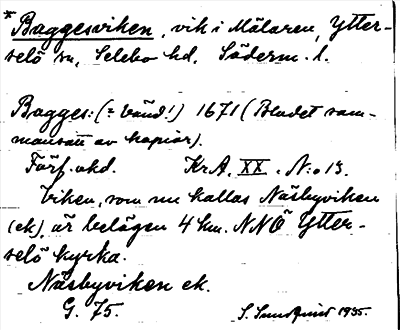 * Baggesviken, vik i Mälaren, Ytter-
selö sn, Selebo hd, Söderm. l.
Bagges: (= bånd!) 1671 (Bladet sam-
mansatt av kopior).
Förf. okd. Kr.A. XX. N:o 13.
Viken, som nu kallas Näsbyviken
(ek), är belägen 4 km. NNÖ Ytter-
selö kyrka.
Näsbyviken ek.
G. 75. S. Sundquist 1935.